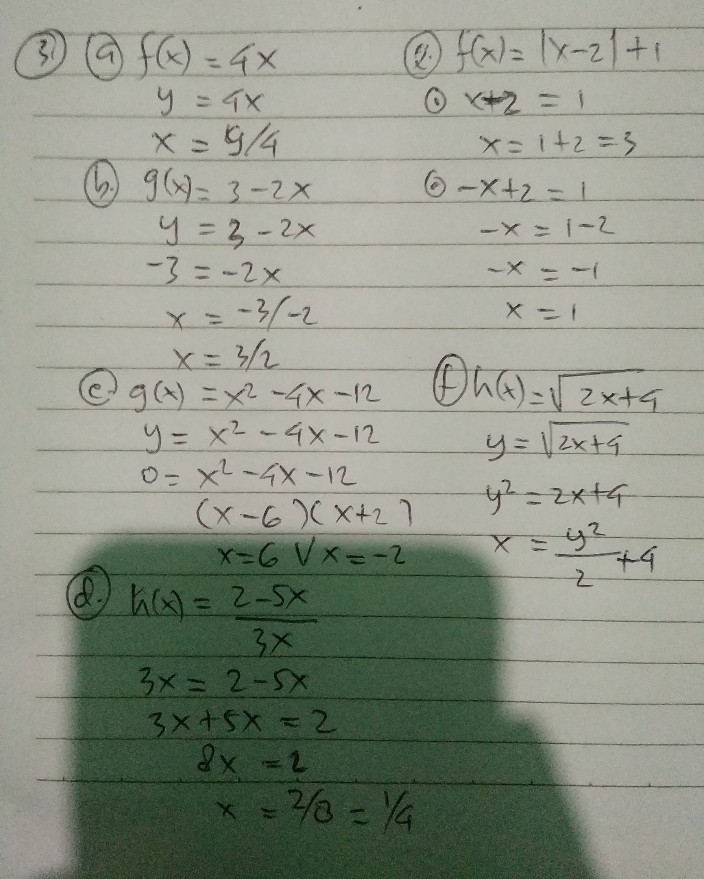 3. a f(x) = 4x
y = 4x
x = y/4
b. g(x) = 3 - 2x
y = 3 - 2x
-3 = -2x
x = -3/-2
x = 3/2
c. g(x) = x² - 4x - 12
y = x² - 4x - 12
0 = x² - 4x - 12
(x - 6)(x + 2)
x = 6 V x = -2
d. h(x) = (2 - 5x)/(3x)
3x = 2 - 5x
3x + 5x = 2
8x = 2
x = 2/8 = 1/4
e. f(x) = |x - 2| + 1
x - 2 = 1
x = 1 + 2 = 3
-x + 2 = 1
-x = 1 - 2
-x = -1
x = 1
f h(x) = √(2x + 4)
y = √(2x + 4)
y² = 2x + 4
x = y²/2 + 4